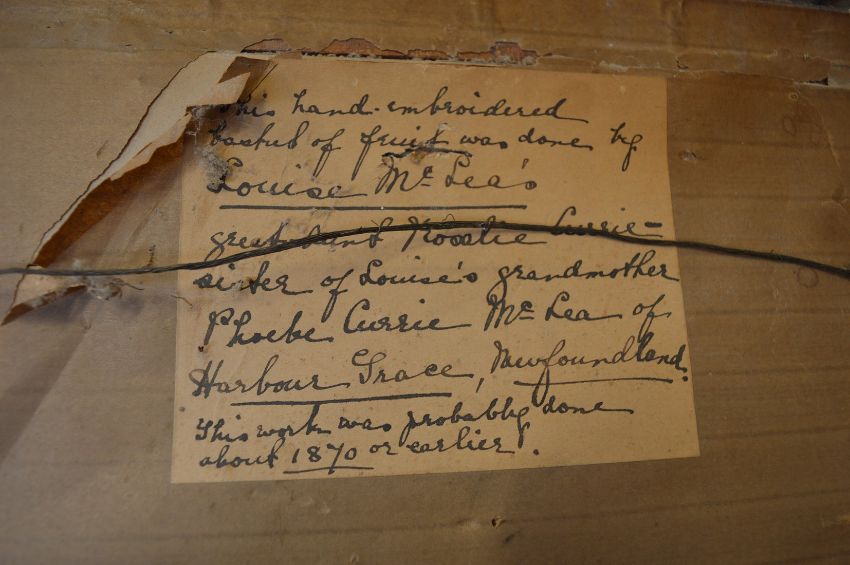 This hand-embroidered
basket of fruit was done by
Louise Mc Lea's
great aunt Rosalie Currie-
sister of Louise's grandmother
Phoebe Currie Mc Lea of
Harbour Grace, Newfoundland.
This work was probably done
about 1870 or earlier.